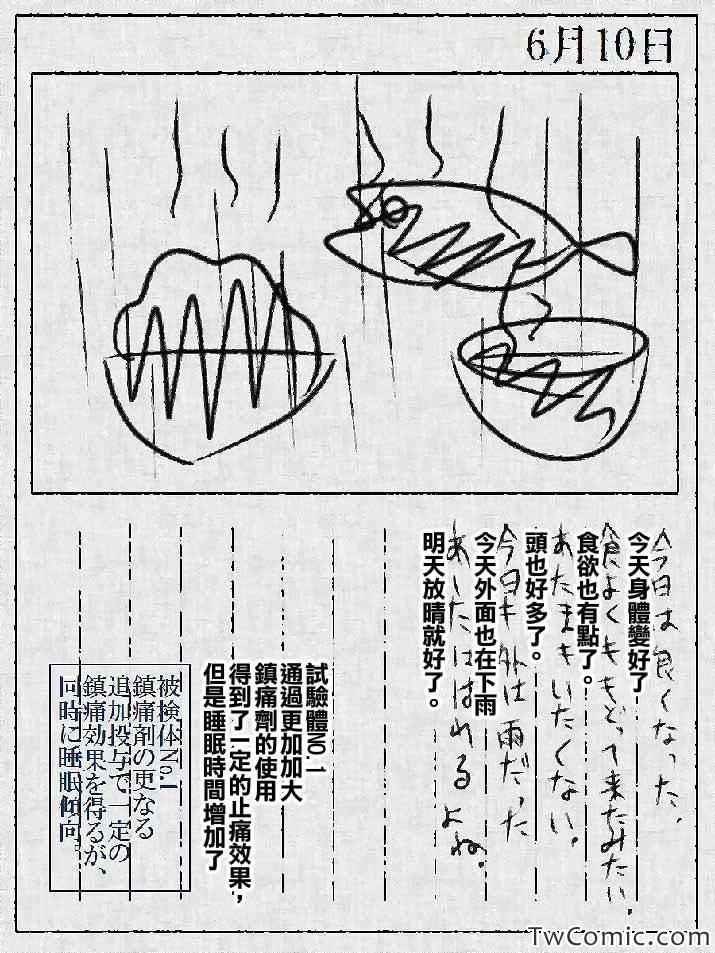 6月10日
今日は良くなった。
今天身體變好了
食よくももどって来たみたい。
食欲也有點了。
あたまもいたくない。
頭也好多了。
今日も外は雨だった
今天外面也在下雨
あしたははれるよね。
明天放晴就好了。
試驗體NO.1
通過更加加大
鎮痛劑的使用
得到了一定的止痛效果，
但是睡眠時間增加了
被検体No.1
鎮痛剤の更なる
追加投与で一定の
鎮痛効果を得るが、
同時に睡眠傾向。
TwComic.com